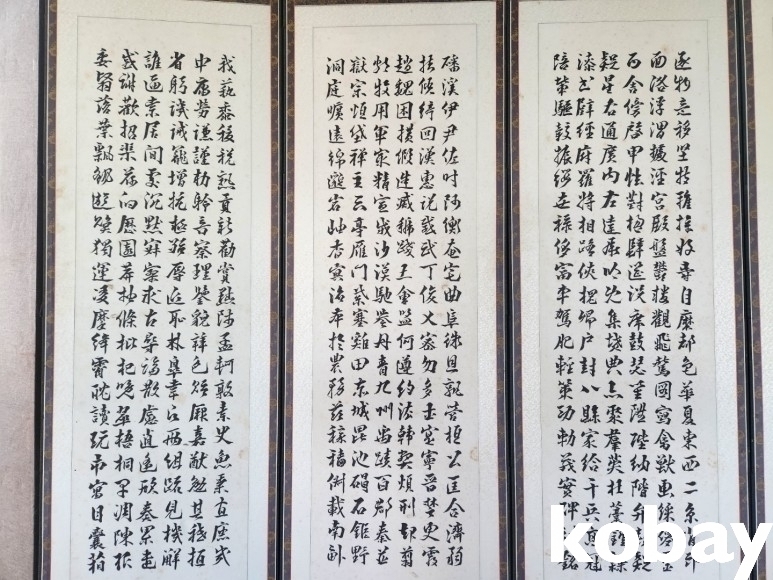 逐物意移堅持雅操好爵自縻都邑華夏東西二京背邙
面洛浮渭據涇宮殿盤鬱樓觀飛驚圖寫禽獸畫綵仙靈
丙舍傍啓甲帳對楹肆筵設席鼓瑟吹笙陞階納陛弁轉
疑星右通廣內左達承明既集墳典亦聚羣英杜藁鍾隸
漆書壁經府羅將相路俠槐卿戶封八縣家給千兵高冠
陪輦驅轂振纓世祿侈富車駕肥輕策功勒茂實碑刻銘
磻溪伊尹佐時阿衡奄宅曲阜微旦孰營桓公匡合濟弱
扶傾綺回漢惠說感武丁俊乂密勿多士寔寧晉楚更霸
趙魏困橫假途滅虢踐土會盟何遵約法韓弊煩刑起翦
頗牧用軍最精宣威沙漠馳譽丹青九州禹跡百郡秦並
嶽宗恒岱禪主云亭雁門紫塞雞田赤城昆池碣石鉅野
洞庭曠遠綿邈岩岫杳冥治本於農務茲稼穡俶載南畝
我藝黍稷稅熟貢新勸賞黜陟孟軻敦素史魚秉直庶幾
中庸勞謙謹勅聆音察理鑒貌辨色貽厥嘉猷勉其祗植
省躬譏誡寵增抗極殆辱近恥林皋幸即兩組疏見機解
誰逼索居閒處沉默寂寥求古尋論散慮逍遙欣奏累遣
慼謝歡招渠荷的歷園莽抽條枇杷晚翠梧桐早凋陳根
委翳落葉飄颻遊鵾獨運凌摩絳霄耽讀翫市寓目囊箱
kobay